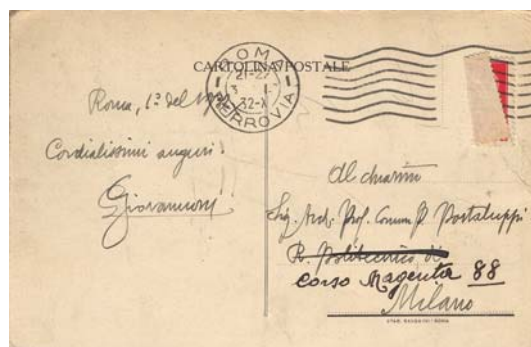 CARTOLINA POSTALE
ROMA
21-22
3 I.
32-X
FERROVIA
Roma, 1° del
Cordialissimi auguri!
Giovannoni
Al chiar.mo
Sig. Arch. Prof. Comm. P. Portaluppi
R. Politecnico di
Corso Magenta 88
Milano